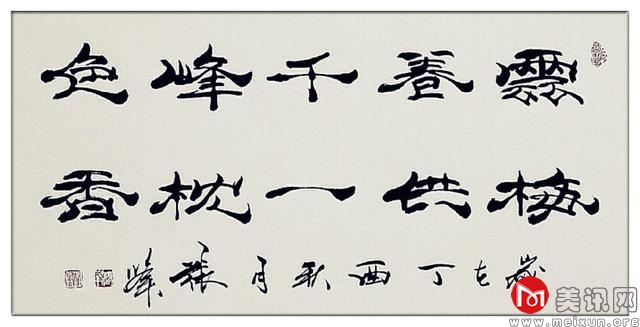 雲養千峰色
梅供一枕香
歲在丁酉秋月張峰
美讯网
www.meixun.org